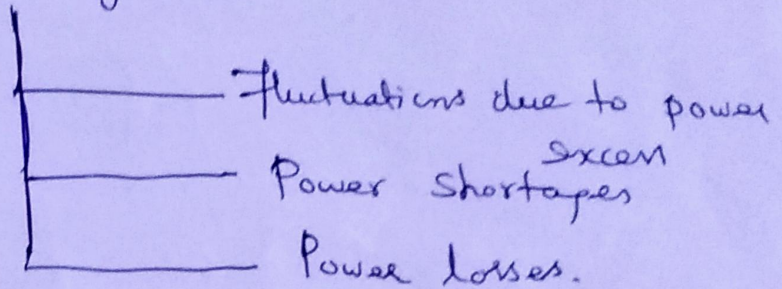 Fluctuations due to power
excess
Power shortages
Power losses.